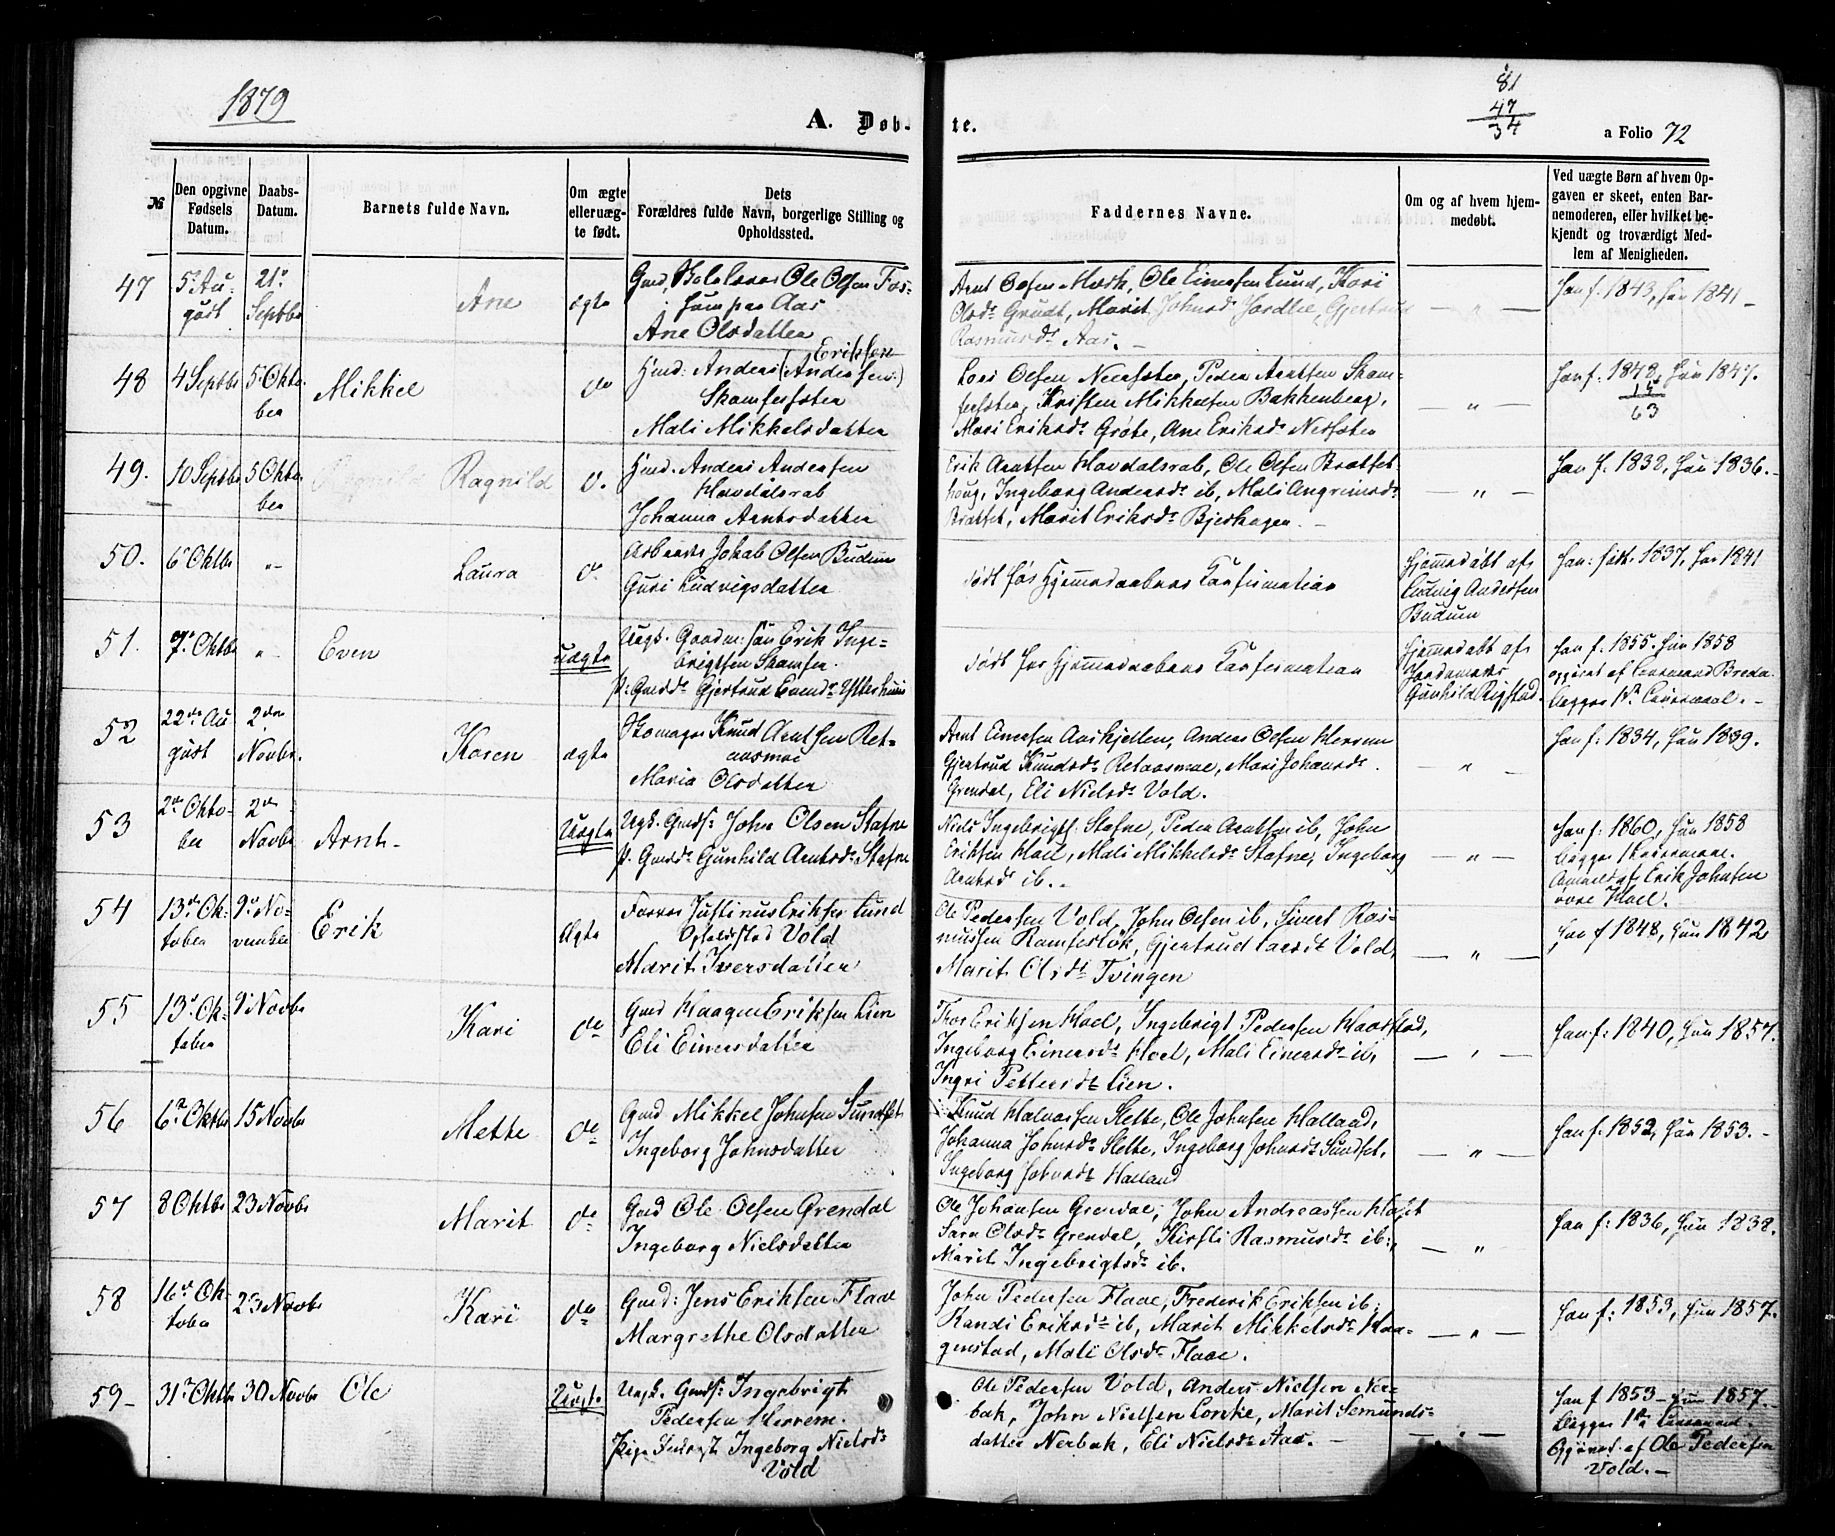 1879
A. Døb-
te.
81
47
34
a Folio 72
№
Den opgivne Fødsels Datum.
Daabs-Datum.
Barnets fulde Navn.
Om ægte eller uægte født.
Dets Forældres fulde Navn, borgerlige Stilling og Opholdssted.
Faddernes Navne.
Om og af hvem hjemmedøbt.
Ved uægte Børn af hvem Opgaven er skeet, enten Barnemoderen, eller hvilket bekjendt og troværdigt Medlem af Menigheden.
47
5 August
21 Septbr
Ane
ægte
Gmd, Ole Olsen
paa Aas
Ane Olsdatter
Arnt Olsen Mærk, Ole Einersen Lund, Kari
Olsdr Grudt, Marit Johnsd Jardlie, Gjertrud
Rasmusdr Aas. –
– " –
han f. 1843, hun 1841 –
48
4 Septbr
5 Oktober
Mikkel
do
Gmd: Anders (Andersen:) Eriksen
Skamfersæter
Mali Mikkelsdatter
Lars Olsen Nersæter, Peder Arntsen Skam-
fersæter, Kristen Mikkelsen Bakkenberg,
Mari Eriksdr Grøte, Ane Eriksdr Nersæter
– " –
han f: 1848, hun 1847.
15
63
49.
10 Septbr
5 Oktober
Ragnild
Ragnild
d.
Gmd. Anders Andersen
Havdalsrab
Johanna Arntsdatter
Erik Arntsen Havdalsrab, Ole Olsen Brattset-
houg, Ingeborg Andersdr ib, Mali Angrimsdr
Brattset, Marit Eriksdr Bjerkagen. –
– " –
han f. 1832, hun 1836. –
50.
6 Oktbr
"
Laura
d.
Jakob Olsen Budum
Guri Ludvigsdatter
død før Hjemmedaabens Konfirmation
Hjemmedøbt af
Ludvig Andersen
Budum
han: født. 1837, hun 1841
51.
7. Oktbr
"
Even
Uægte
Ungk. Gaardm: søn Erik Inge-
brigtsen Skamfer.
P: Gmdd Gjertrud Evensdr Ytterhuus
død før Hjemmedaabens Konfirmation
Hjemmedøbt af
Jordemoder
Gunhild Rigstad.
han f. 1855. hun 1858
opgivet af Breda
begges 1ste Leiermaal. –
52
22de August
2den Novbr.
Karen
ægte
Skomager Knud Arntsen Ret-
aasmoe
Maria Olsdatter
Arnt Einersen Aaskjellen, Anders Olsen Herrem
Gjertrud Knudsdr Retaasmoe, Mari Johansdr
Grendal, Eli Nielsdr Vold.
– " –
han f: 1834, hun 1839.
53
2den Oktober
2den Novbr
Arnt
Uægte
Ugk. Gmds: John Olsen Stafne
P. Gmdd: Gunhild Arntsdr Stafne
Niels Ingebrigts: Stafne, Peder Arntsen ib, John
Eriksen Hoel, Mali Mikkelsdr Stafne, Ingeborg
Arntsd ib. –
– " –
han f: 1860, hun 1858
begges 1 Leiermaal.
Anmeldt af Erik Johnsen
øvre Hoel.
54
13de Oktober
9de November
Erik
Ægte
Justinus Eriksen Lund
Opholdssted Vold
Marit Iversdatter
Ole Pedersen Vold, John Olsen ib, Sivert Ras-
mussen Ramfestøk, Gjertrud Larsdr Vold,
Marit Olsdr Tvingen
– " –
han f 1848, hun 1842
55
13de Oktober
9 Novbr
Kari
do
Gmd Haagen Eriksen Lien
Eli Einersdatter
Thor Eriksen Hoel, Ingebrigt Pedersen Haarstad,
Ingeborg Einersdr Hoel, Mali Einersdr ib,
Ingri Pettersdr Lien.
– " –
han f: 1840, hun 1857.
56
6te Oktbr
15 Novbr
Mette
do
Gmd Mikkel Johnsen Sundset
Ingeborg Johnsdatter
Knud Halvorsen Slette, Ole Johnsen Halland,
Johanna Johnsdr Slette, Ingeborg Johnsdr Sundset,
Ingeborg Johnsdr Halland
– " –
han f. 1852, hun 1853. –
57
8 Oktbr
23 Novbr
Marit
do
Gmd Ole Olsen Grendal
Ingeborg Nielsdatter
Ole Johansen Grendal, John Andreassen
Sara Olsdr Grendal, Kirsti Rasmusdr ib:,
Marit Ingebrigtsdr ib.
– " –
han f: 1836, hun 1838.
58
16de Oktober
23 Novbr
Kari
do
Gmd: Jens Eriksen Flaae
Margrethe Olsdatter
John Pedersen Flaae, Frederik Eriksen ib,
Randi Eriksdr ib, Marit Mikkelsdr Haa-
genstad, Mali Olsdr Flaae.
– " –
han f: 1853, hun 1857.
59 –
31te Oktbr
30 Novbr
Ole
Uægte
Ungk. Gmds: Ingebrigt
Pedersen Herrem.
Pige Ingeborg Nielsdr
Vold
Ole Pedersen Vold, Anders Nielsen Ner-
bak, John Nielsen Loreke, Marit Semunds-
datter Nerbak, Eli Nielsdr Aas. –
– " –
han f 1853 – hun 1857.
Begges 1ste Leiermaal
Opgivet af Ole Pedersen
Vold. –